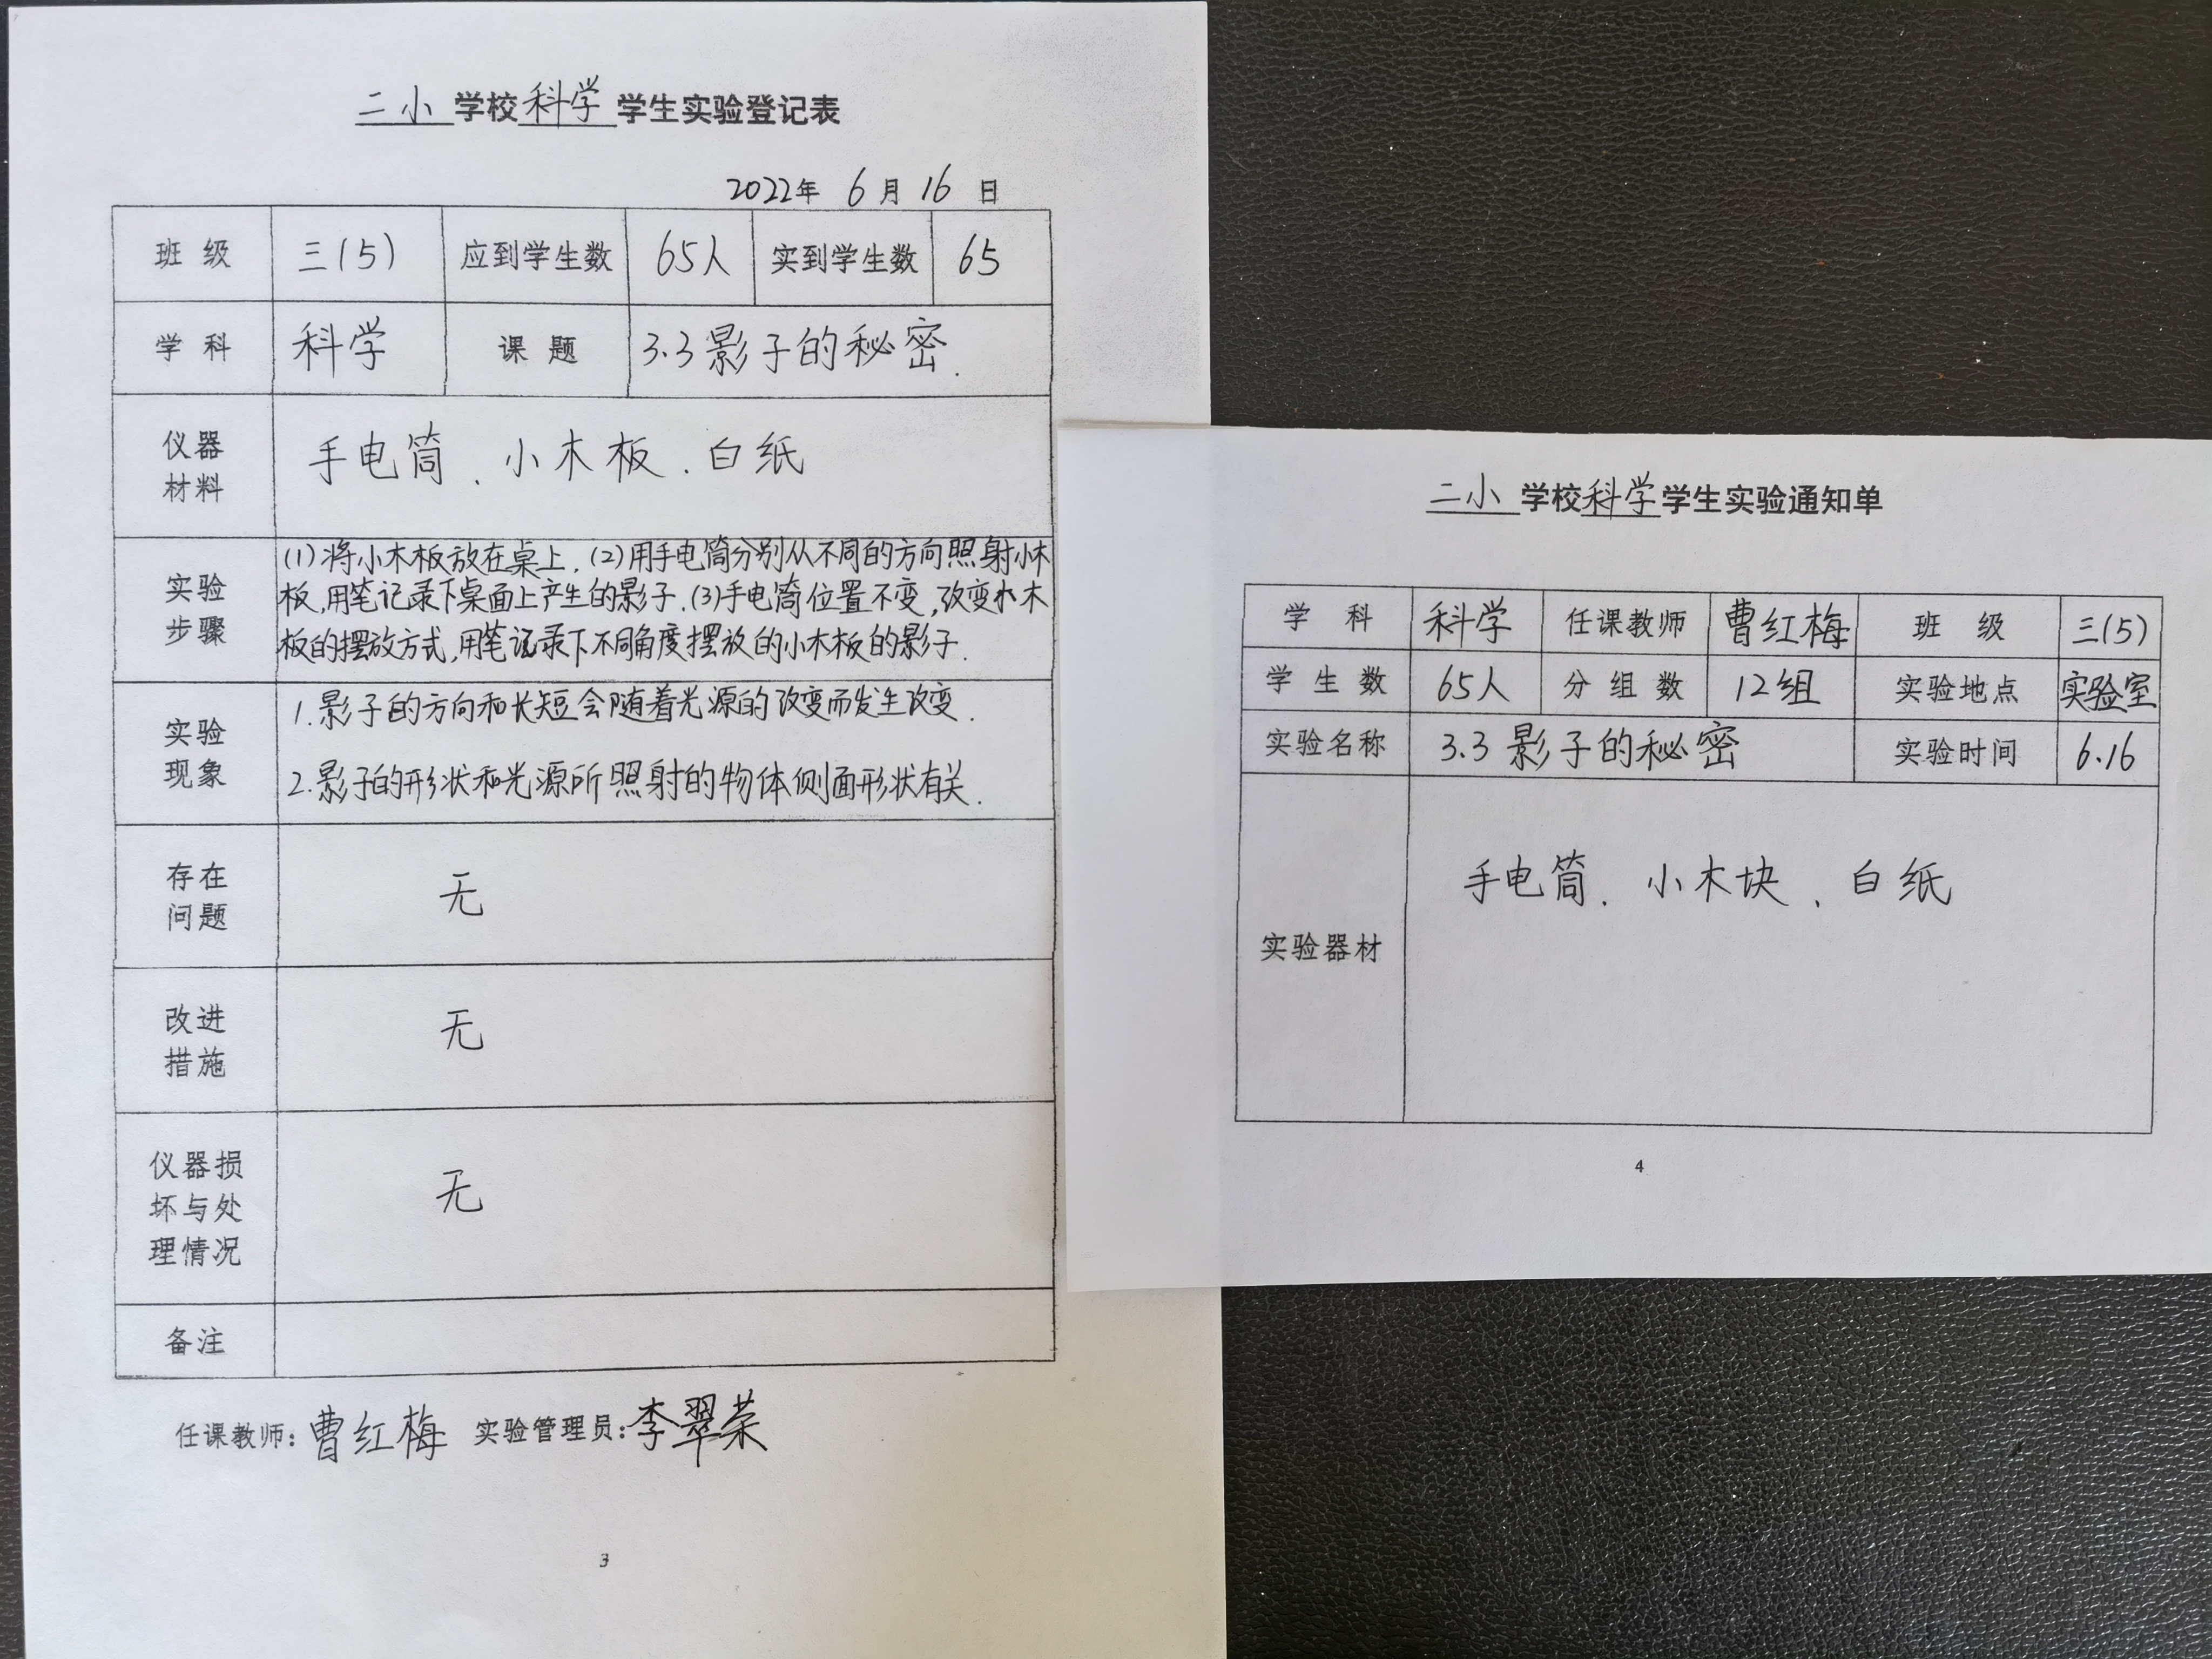 二小 学校 科学 学生实验登记表
2022年 6 月 16 日
班 级 三(5) 应到学生数 65人 实到学生数 65
学 科 科学 课 题 3.3影子的秘密.
仪器
材料
手电筒、小木板、白纸
实验
步骤
(1)将小木板放在桌上.(2)用手电筒分别从不同的方向照射小木
板,用笔记录下桌面上产生的影子.(3)手电筒位置不变,改变小木
板的摆放方式,用笔记录下不同角度摆放的小木板的影子.
实验
现象
1.影子的方向和长短会随着光源的改变而发生改变.
2.影子的形状和光源所照射的物体侧面形状有关.
存在
问题
无
改进
措施
无
仪器损
坏与处
理情况
无
备注
任课教师:曹红梅 实验管理员:李翠荣
3
二小 学校科学学生实验通知单
学 科 科学 任课教师 曹红梅 班 级 三(5)
学 生 数 65人 分 组 数 12组 实验地点 实验室
实验名称 3.3影子的秘密 实验时间 6.16
实验器材 手电筒、小木块、白纸
4